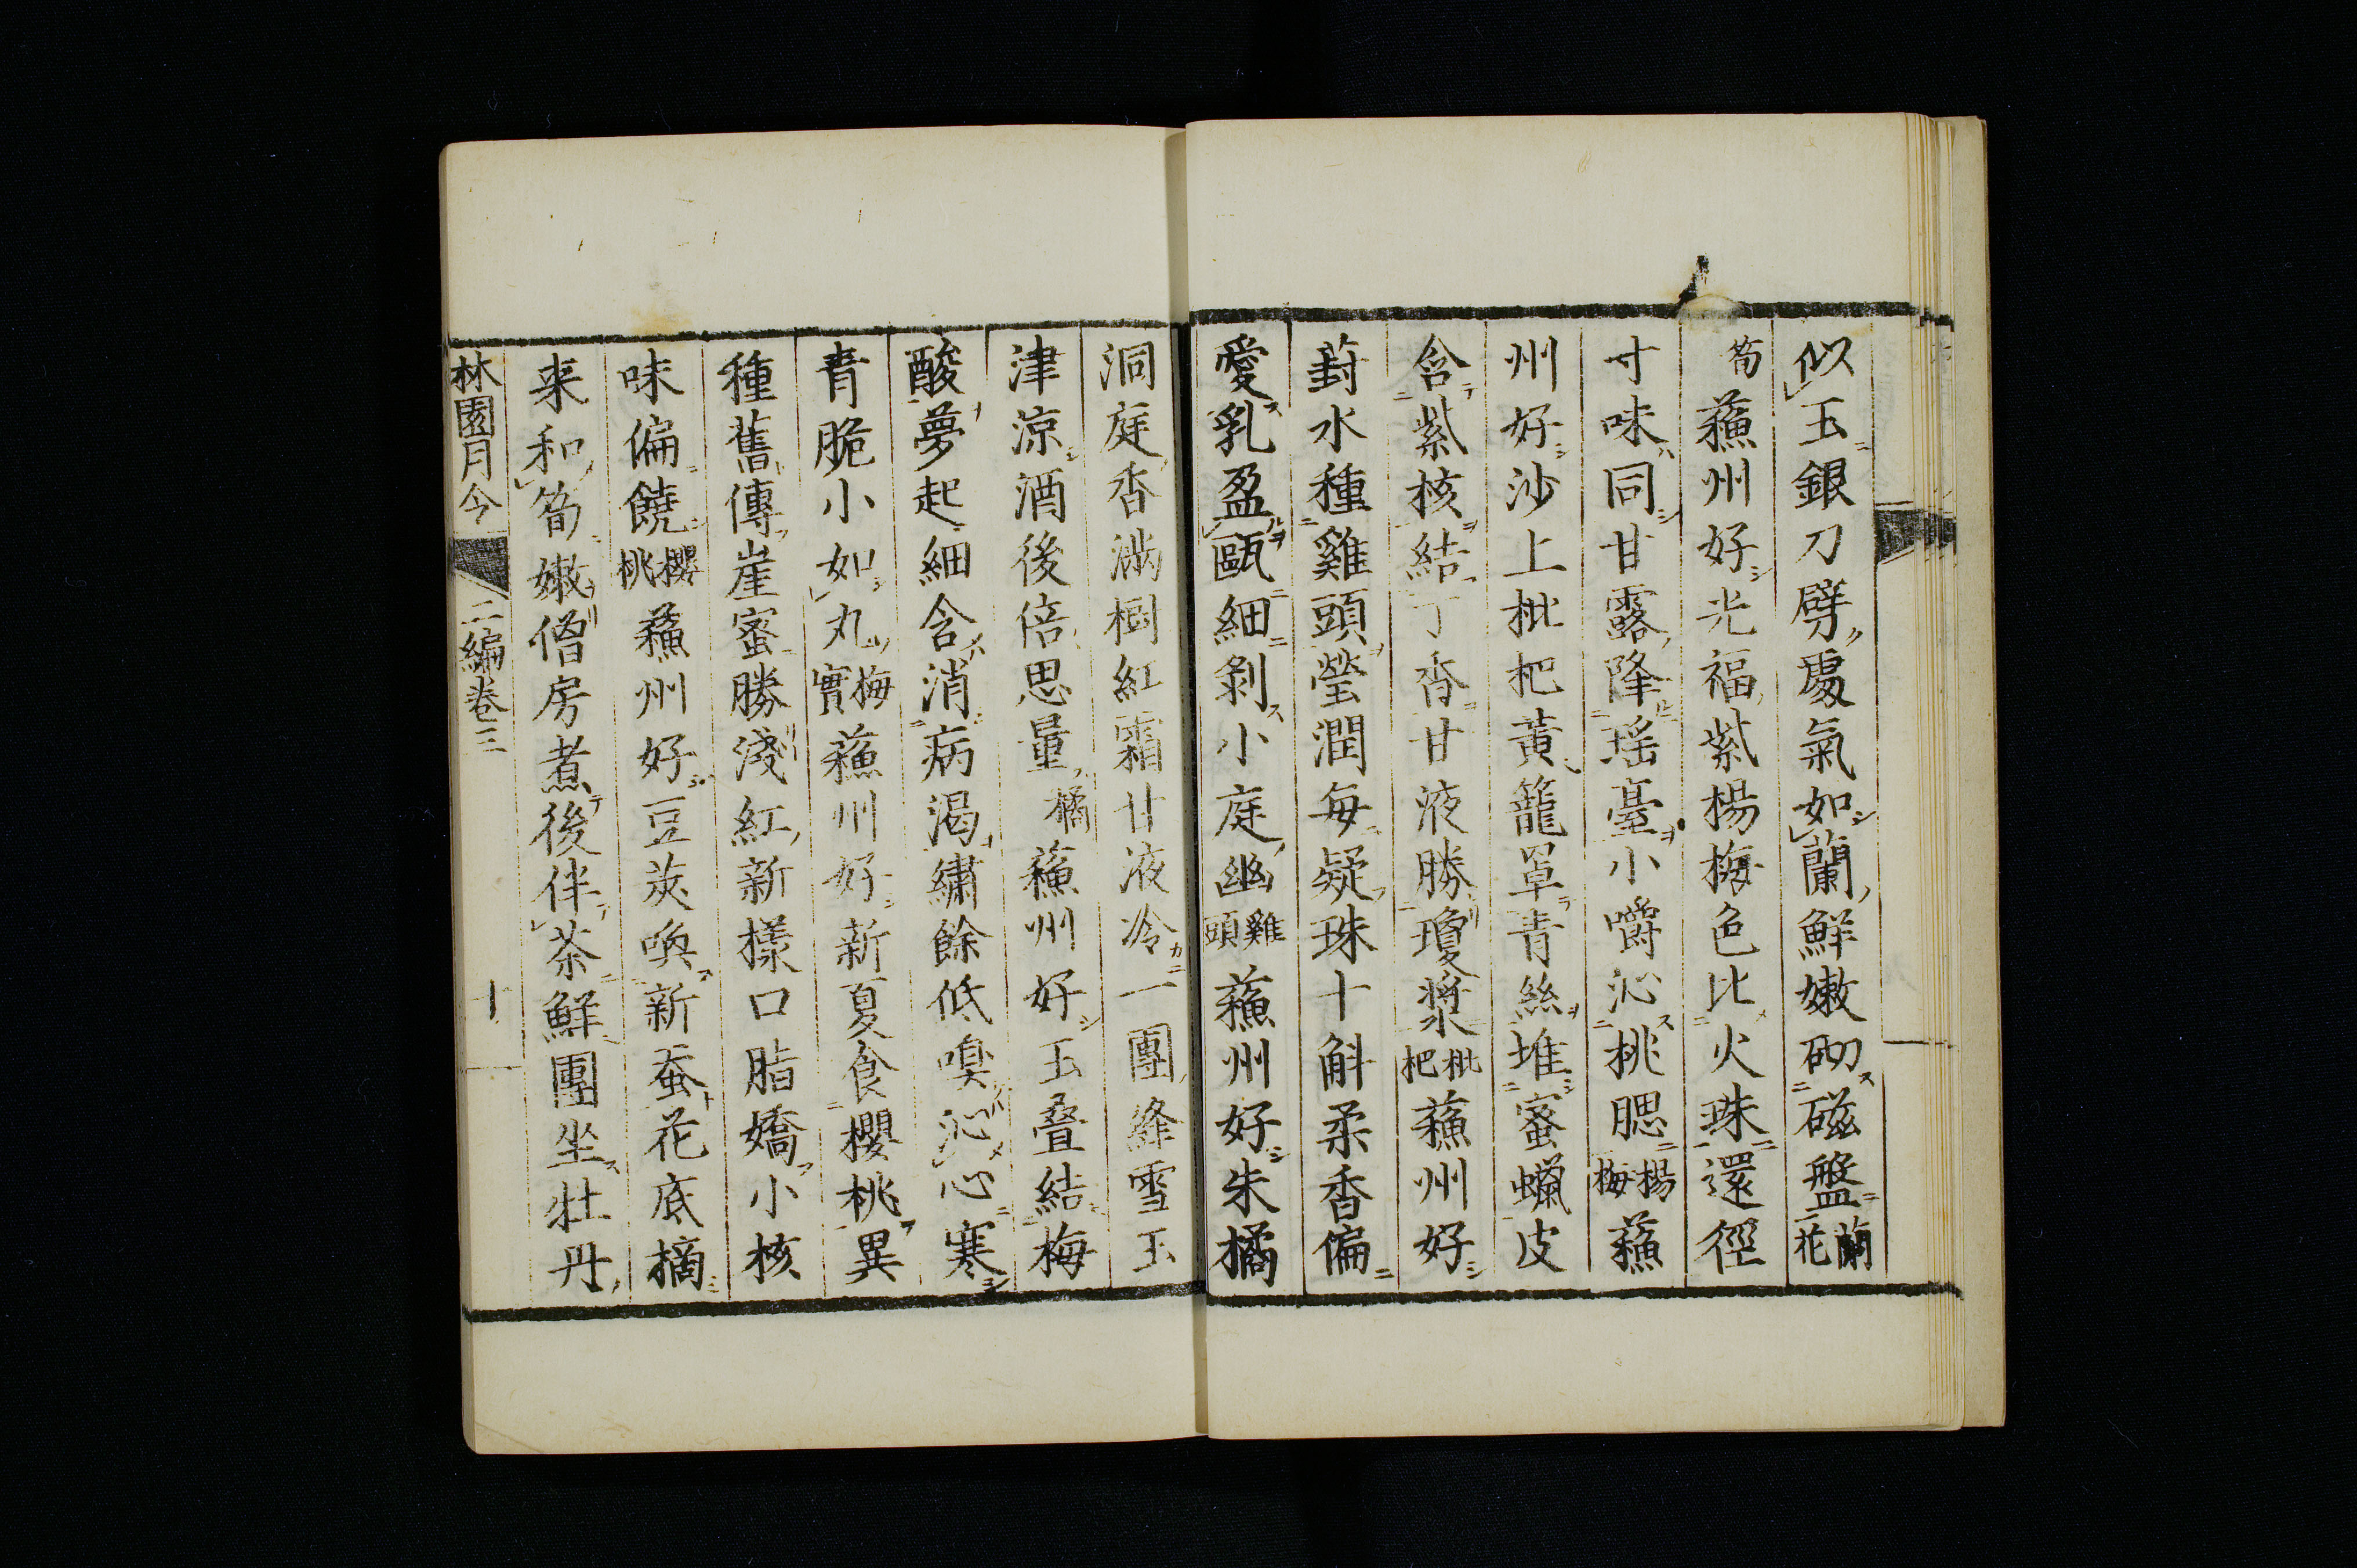 似玉銀刀劈處氣如蘭鮮嫩砌磁盤蘭花
筍蘓州好光福紫楊梅色比火珠還徑
寸味同甘露降瑶臺小嚼沁桃腮楊梅蘓
州好沙上枇杷黄籠罩青絲堆蜜蠟皮
含紫核結丁香甘液勝瓊漿枇杷蘓州好
葑水種雞頭瑩潤每疑珠十斛柔香偏
愛乳盈甌細剝小庭幽雞頭蘓州好朱橘
洞庭香滿樹紅霜甘液冷一團絳雪玉
津涼酒後倍思量橘蘓州好玉叠結梅
酸夢起細含消病渴繡餘低嗅沁心寒
青脆小如丸梅實蘓州好新夏食櫻桃異
種舊傳崖蜜勝淺紅新樣口脂嬌小核
味偏饒櫻桃蘓州好豆莢喚新蚕花底摘
来和筍嫩僧房煮後伴茶鮮團坐牡丹
林園月令 二編卷三 十